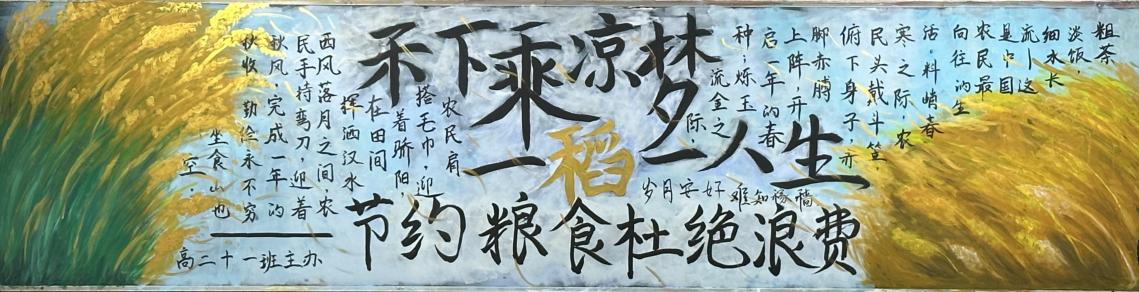 禾下乘凉梦
一稻一人生
节约粮食杜绝浪费
岁月安好 难知
粗茶
淡饭，
细水长
流——这
是中国
农民最
向往的生
活，料峭春
寒之际，农
民头戴斗笠，
俯下身子，亦
脚赤膊
上阵，开
启一年的春
种；烁玉
流金之
际，
农民肩
搭毛巾，迎
着骄阳，
在田间
挥洒汉水
西风落月之间，农
民手持弯刀，迎着
秋风，完成一年的
秋收，勤俭永不穷
坐食山也
空，
高二十一班主办